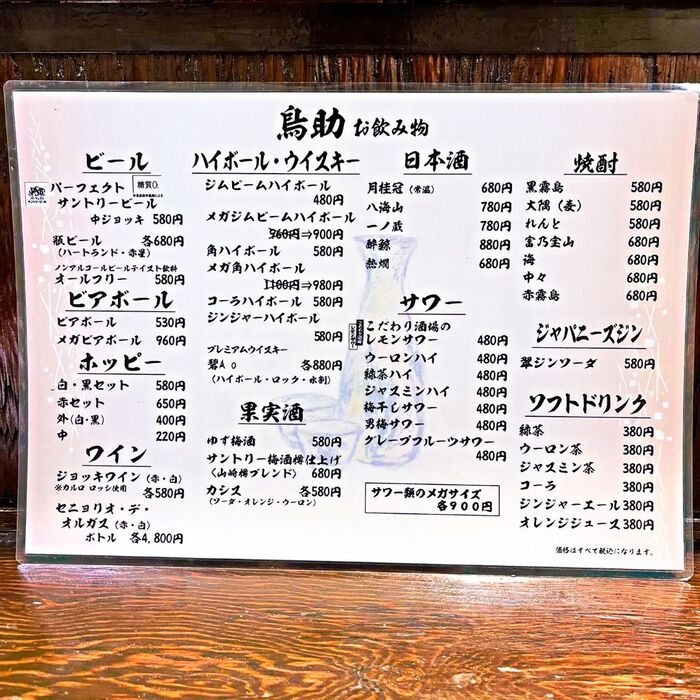 鳥助 お飲み物
ビール
パーフェクト 糖質0
サントリービール
中ジョッキ 580円
瓶ビール 各680円
(ハートランド・赤星)
ノンアルコールビールテイスト飲料
オールフリー 580円
ビアボール
ビアボール 530円
メガビアボール 960円
ホッピー
白・黒セット 580円
赤セット 650円
外(白・黒) 400円
中 220円
ワイン
ジョッキワイン(赤・白)
※カルロ ロッシ使用 各580円
セニョリオ・デ・
オルガス(赤・白)
ボトル 各4,800円
ハイボール・ウイスキー
ジムビームハイボール
480円
メガジムビームハイボール
960円⇒900円
角ハイボール 580円
メガ角ハイボール
1100円⇒980円
コーラハイボール 580円
ジンジャーハイボール
580円
プレミアムウイスキー
碧Ao 各880円
(ハイボール・ロック・水割)
果実酒
ゆず梅酒 580円
サントリー梅酒樽仕上げ
〈山崎樽ブレンド〉 680円
カシス 各580円
(ソーダ・オレンジ・ウーロン)
日本酒
月桂冠(常温) 680円
八海山 780円
一ノ蔵 780円
酔鯨 880円
熱燗 680円
サワー
こだわり酒場の
レモンサワー 480円
ウーロンハイ 480円
緑茶ハイ 480円
ジャスミンハイ 480円
梅干しサワー 480円
男梅サワー 480円
グレープフルーツサワー
480円
サワー類のメガサイズ
各900円
焼酎
黒霧島 580円
大隅(麦) 580円
れんと 580円
富乃宝山 680円
海 680円
中々 680円
赤霧島 680円
ジャパニーズジン
翠ジンソーダ 580円
ソフトドリンク
緑茶 380円
ウーロン茶 380円
ジャスミン茶 380円
コーラ 380円
ジンジャーエール 380円
オレンジジュース 380円
価格はすべて税込になります。